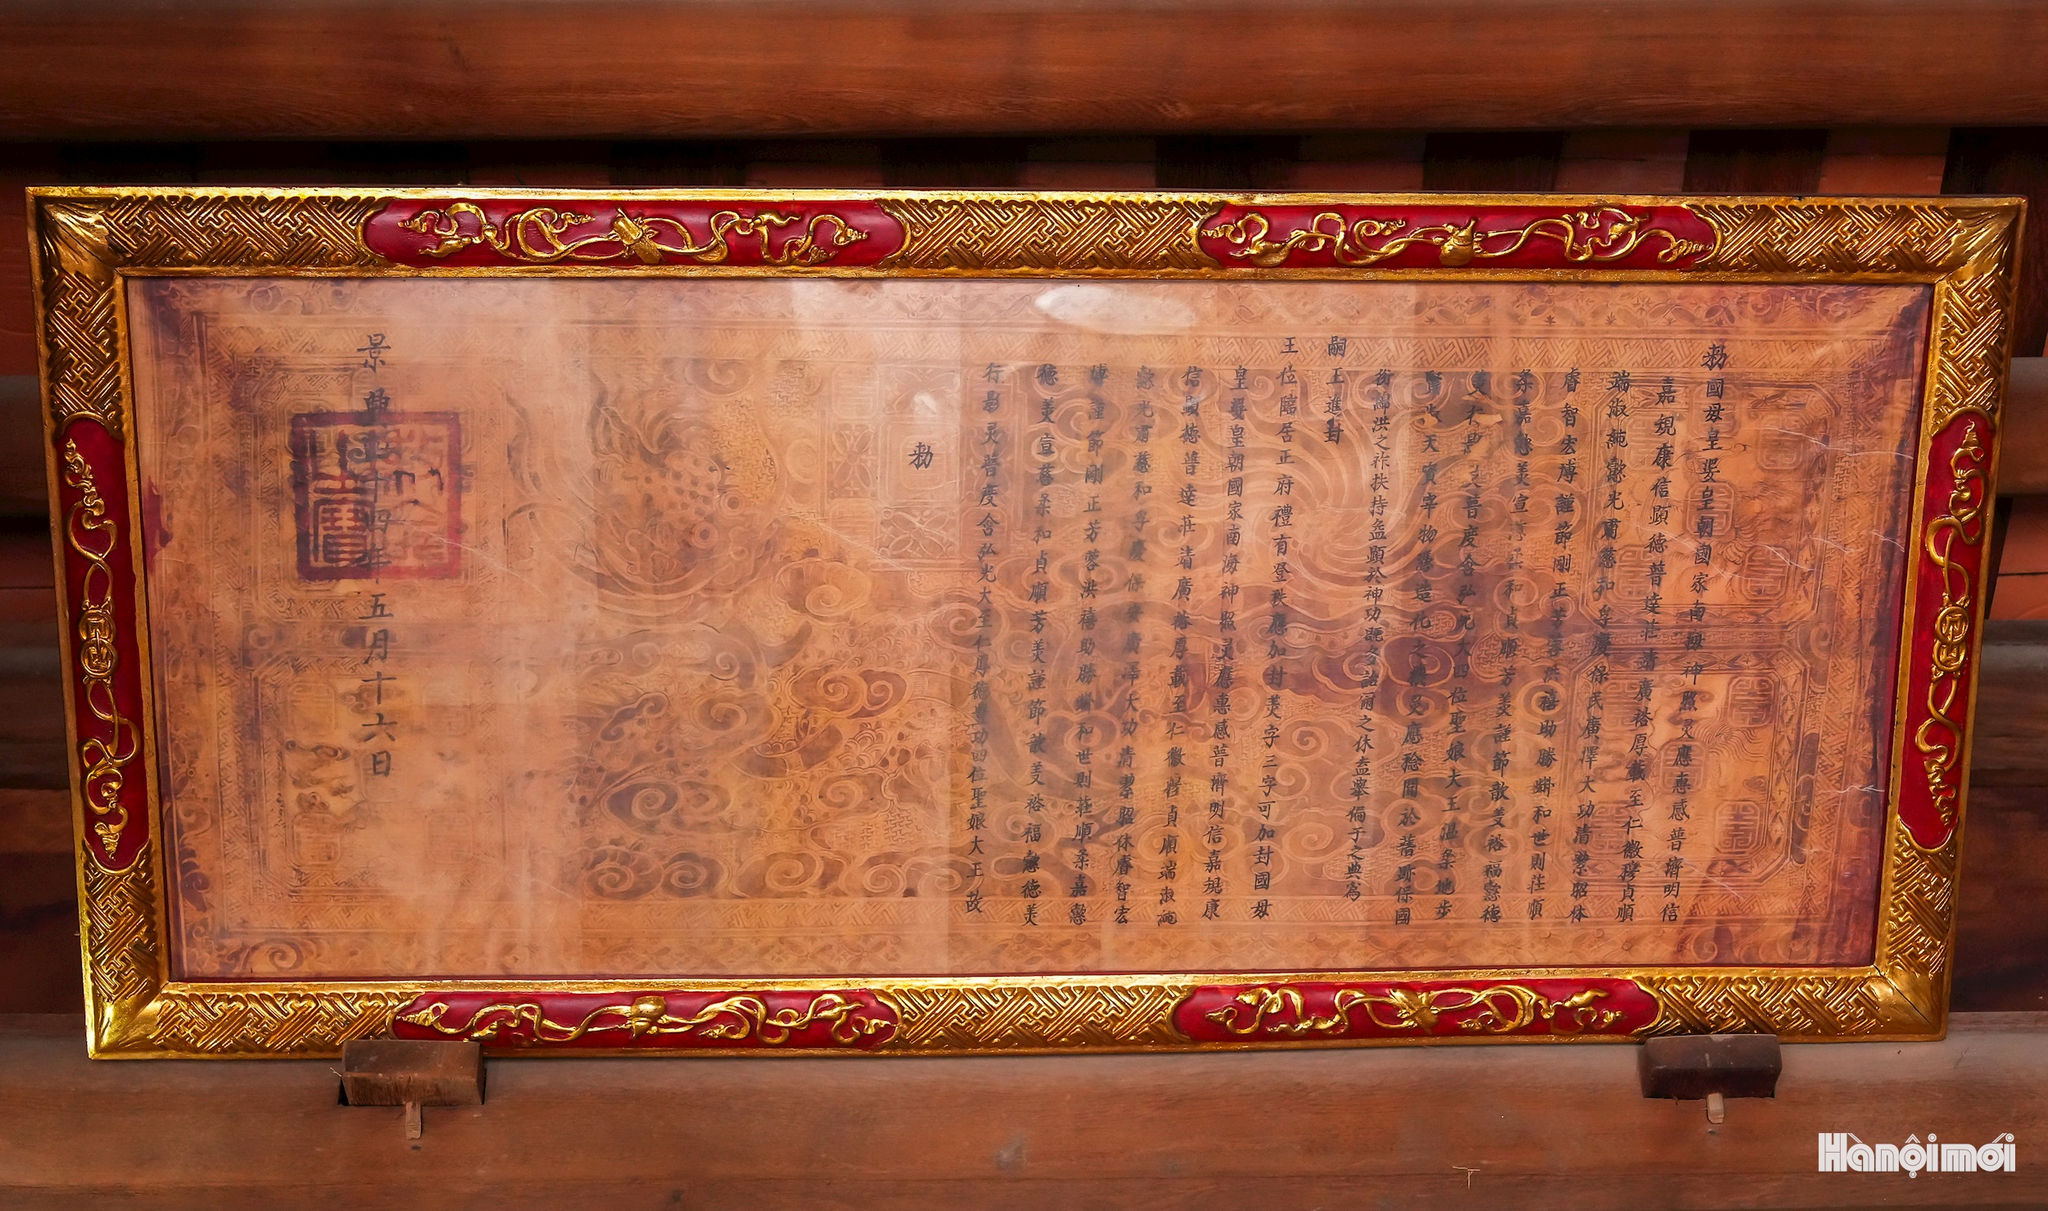 勑國母皇婆皇朝國家南海神照灵應惠感普濟明信
嘉規康信顕德普達莊清廣裕厚載至仁徽穆貞順
端淑純懿光肅慈和孚慶保民廣澤大功清潔昭休
睿智宏博謹節剛正芳蓉洪禧助勝辨和世則莊順
柔嘉懿美宣慈柔和貞順芳美謹節徽美裕福懿德
美行影灵普度含弘光大四位聖娘大王温柔地步
天資宰物造化之灵應稔聞於舊跡保國
衍綿洪之祚扶持益顕於神功之休盍舉徧于之典為
嗣王進封
王位臨居正府禮有登秩應加封美字三字可加封國母
皇婆皇朝國家南海神照灵應惠感普濟明信嘉規康
信顕德普達莊清廣裕厚載至仁徽穆貞順端淑純
懿光肅慈和孚慶保民廣澤大功清潔昭休睿智宏
博謹節剛正芳蓉洪禧助勝辨和世則莊順柔嘉懿
德美宣慈柔和貞順芳美謹節徽美裕福懿德美
行影灵普度含弘光大至仁厚德功四位聖娘大王故
勑
景興四十四年五月十六日
Hànộimới